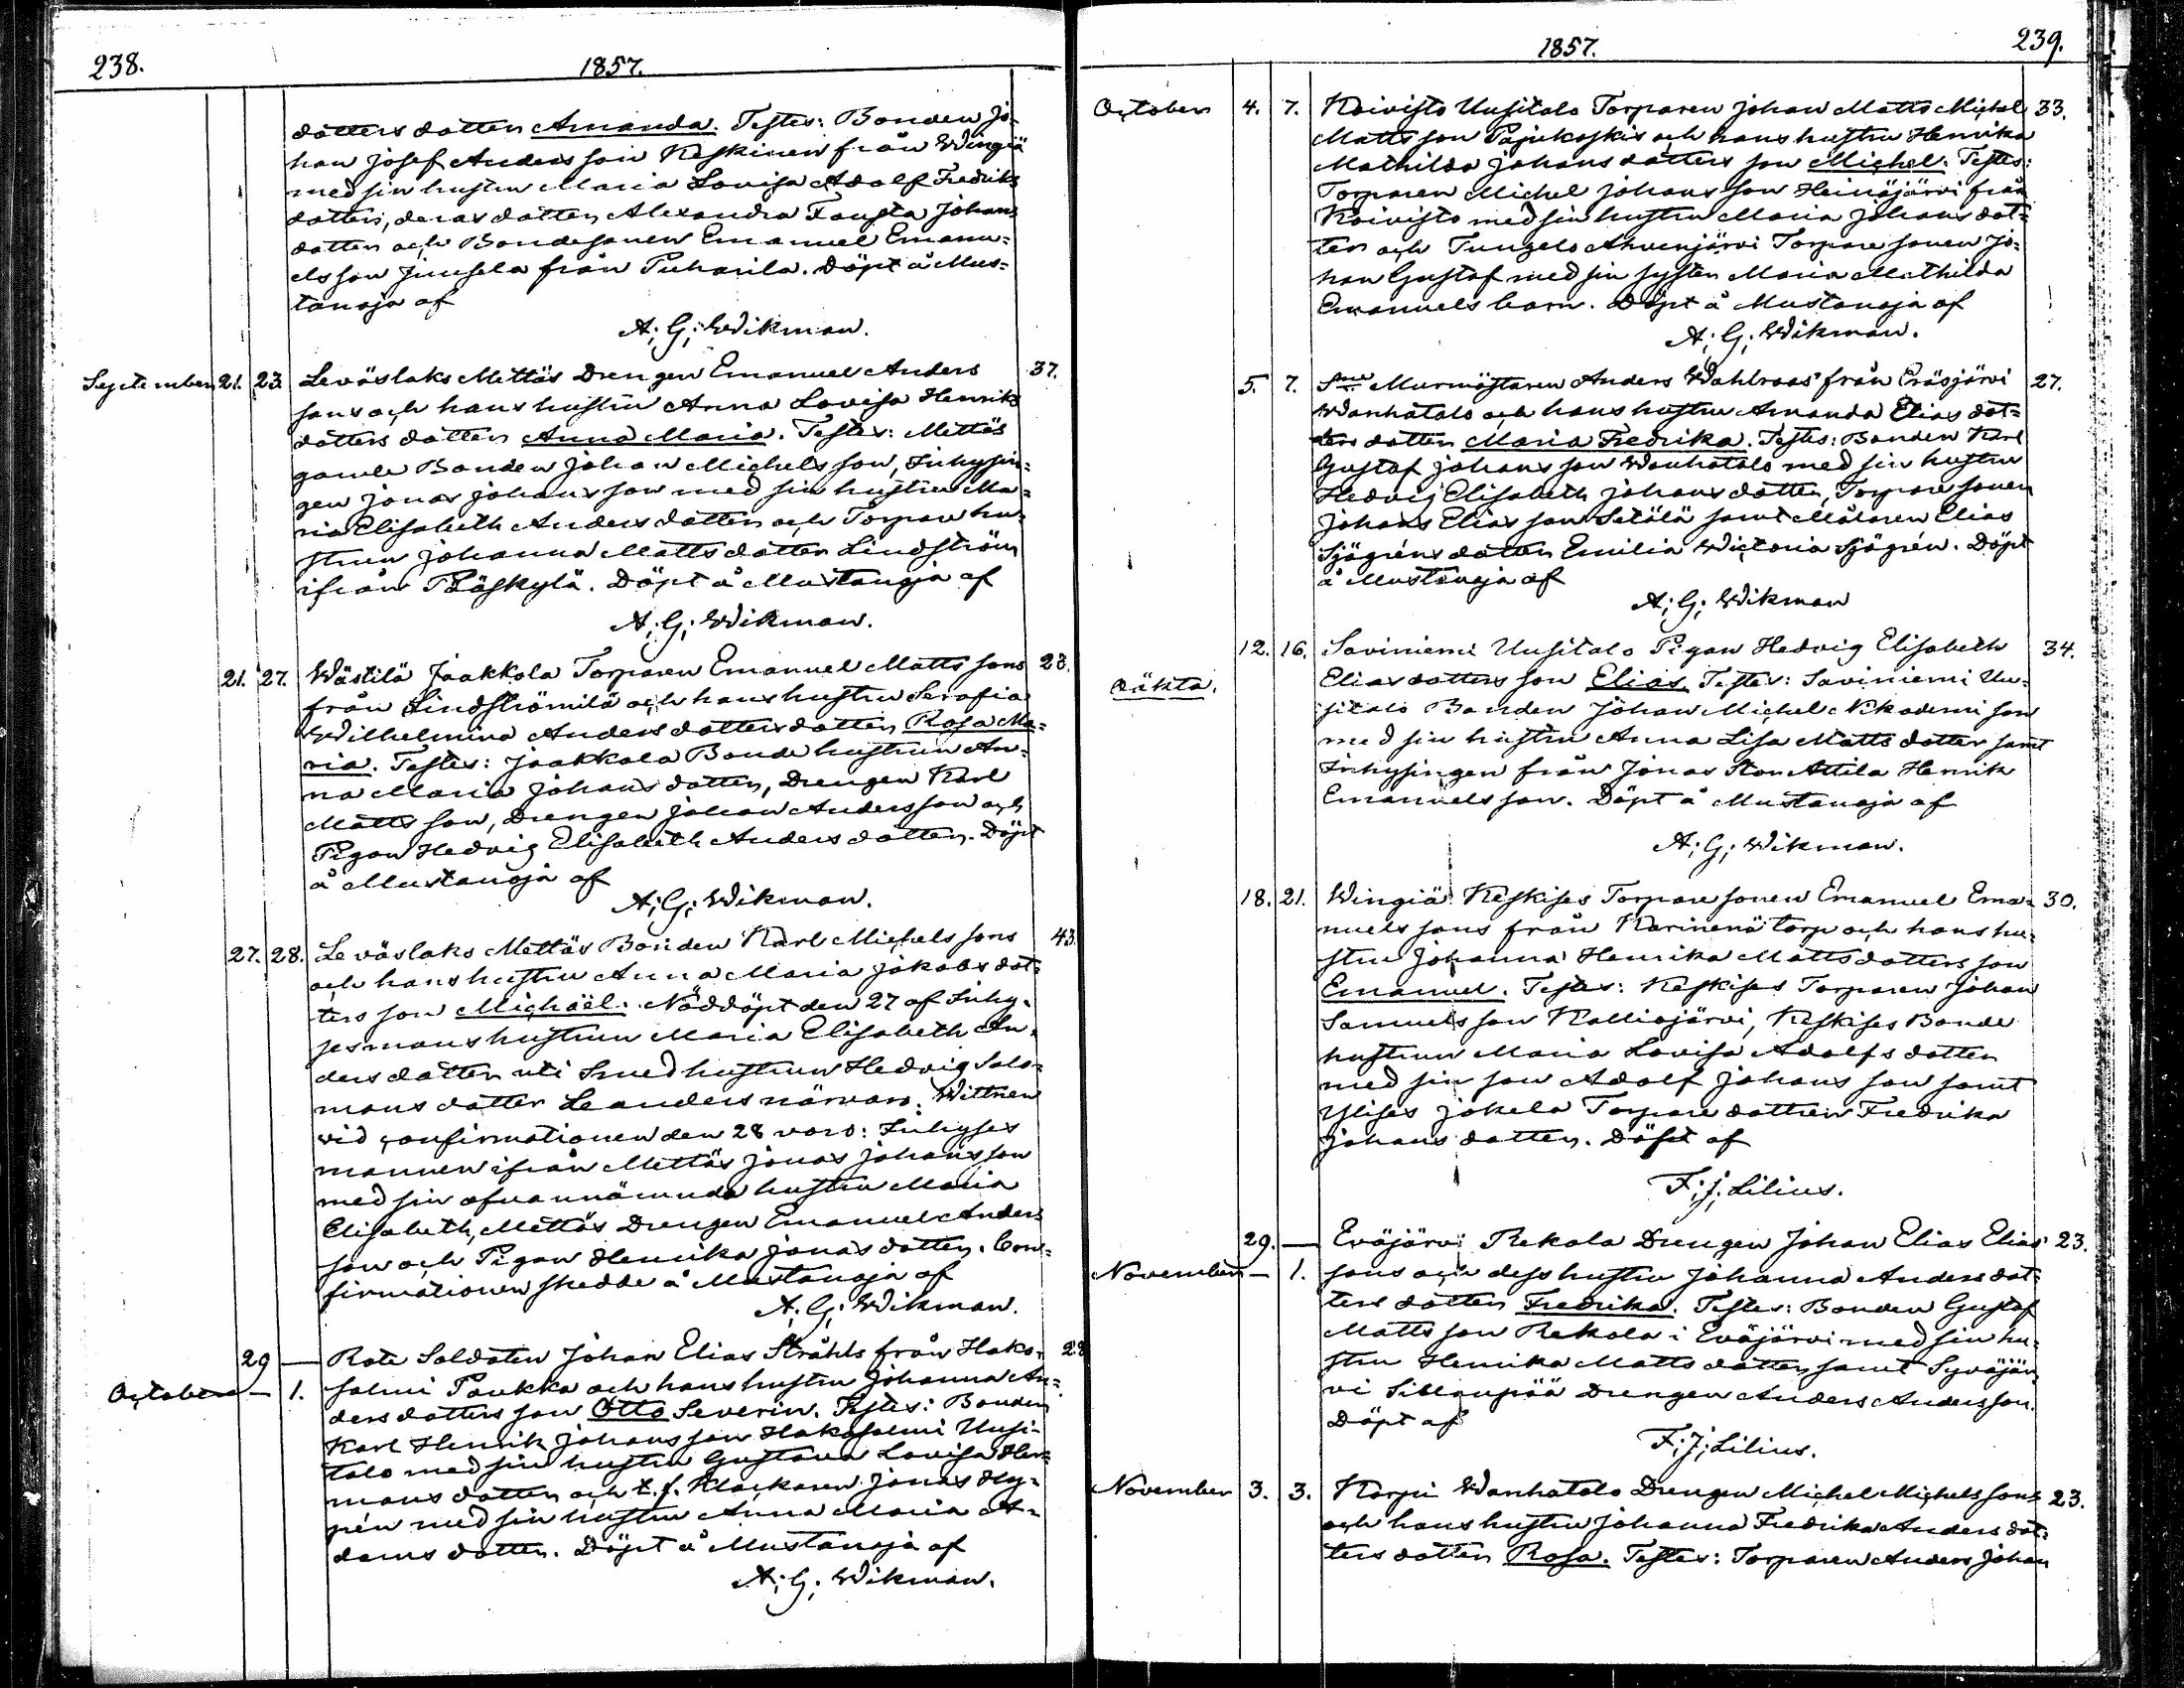 238.
1857.
dotters dotter Amanda. Testes: Bonden Jo-
han Josef Anders son Keskinen från Wingiä
med sin hustru Maria Lovisa Adolf Fredriks
dotter, deras dotter Alexandra Fausta Johans
dotter och Bondesonen Emanuel Emanu=
els son Junsela från Puharila. Döpt å Mus=
tanoja af
A; G; Wikman.
September 21. 23. Leväslaks Mettäs Drengen Emanuel Anders 37.
sons och hans hustru Anna Lovisa Henriks
dotters dotter Anna Maria. Testes: Mettäs
gamle Bonden Johan Michels son, Inhysin=
gen Jonas Johans son med sin hustru Ma=
ria Elisabeth Anders dotter och Torpare hu-
strun Johanna Matts dotter Lindström
ifrån Pääskylä. Döpt å Mustanoja af
A; G; Wikman.
21. 27. Wästilä Jaakkola Torparen Emanuel Matts sons 28.
från Lindströmilä och hans hustru Serafia
Wilhelmina Anders dotters dotter Rosa Ma=
ria. Testes: Jaakkola Bonde hustrun An=
na Maria Johans dotter, Drengen Karl
Matts son, Drengen Johan Anders son och
Pigan Hedvig Elisabeth Anders dotter. Döpt
å Mustanoja af
A; G; Wikman.
27. 28. Leväslaks Mettäs Bonden Karl Michels sons 43.
och hans hustru Anna Maria Jakobs dot=
ters son Michaël. Nöddöpt den 27 af Inhy-
sesmans hustrun Maria Elisabeth An-
ders dotter uti Smed hustrun Hedvig Salo=
mons dotter Leanders närvaro. Wittnen
vid confirmationen den 28 voro: Inhyses
mannen ifrån Mettäs Jonas Johans son
med sin ofvannämnda hustru Maria
Elisabeth, Mettäs Drengen Emanuel Anders
son och Pigan Henrika Jonas dotter. Con=
firmationen skedde å Mustanoja af
A; G; Wikman.
29 — Rote Soldaten Johan Elias Stråhls från Hako- 28
October — 1. salmi Paukka och hans hustru Johanna An=
ders dotters son Otto Severin. Testes: Bonden
Karl Henrik Johans son Hakosalmi Uusi-
talo med sin hustru Gustava Lovisa Her=
mans dotter och t. f. Klockaren Jonas Hy=
pén med sin hustru Anna Maria A=
dams dotter. Döpt å Mustanoja af
A; G; Wikman.
1857.
239.
October 4. 7. Koivisto Uusitalo Torparen Johan Matts Michel 33.
Matts son Pajukoskis och hans hustru Henrika
Mathilda Johans dotters son Michel. Testes:
Torparen Michel Johans son Heinäjärvi från
Koivisto med sin hustru Maria Johans dot=
ter och Tungelo Ahvenjärvi Torpare sonen Jo=
han Gustaf med sin syster Maria Mathilda
Emanuels barn. Döpt å Mustanoja af
A; G; Wikman.
5. 7. Murmästaren Anders Wahlroos från Eräsjärvi 27.
Wanhatalo och hans hustru Amanda Elias dot=
ters dotter Maria Fredrika. Testes: Bonden Karl
Gustaf Johans son Wanhatalo med sin hustru
Hedvig Elisabeth Johans dotter, Torpare sonen
Johans Elias son Setälä samt Målaren Elias
Sjögréns dotter Emilia Wictoria Sjögrén. Döpt
å Mustanoja af
A; G; Wikman
12. 16. Saviniemi Uusitalo Pigan Hedvig Elisabeth 34.
Oäkta. Elias dotters son Elias. Testes: Saviniemi Uu=
sitalo Bonden Johan Michel Nikodemi son
med sin hustru Anna Lisa Matts dotter samt
Inhysingen från Jonas Stor Attila Henrik
Emanuels son. Döpt å Mustanoja af
A; G; Wikman.
18. 21. Wingiä Keskises Torpare sonen Emanuel Ema= 30.
nuels sons från Karinenä torp och hans hu=
stru Johanna Henrika Matts dotters son
Emanuel. Testes: Keskises Torparen Johan
Samuels son Kalliojärvi, Keskises Bonde
hustrun Maria Lovisa Adolfs dotter
med sin son Adolf Johans son samt
Ylises Jokela Torpare dottren Fredrika
Johans dotter. Döpt af
F; J; Lilius.
29. — Eväjärvi Rekola Drengen Johan Elias Elias 23.
November — 1. sons och dess hustru Johanna Anders dot=
ters dotter Fredrika. Testes: Bonden Gustaf
Matts son Rekola i Eväjärvi med sin hu=
stru Henrika Matts dotter samt Syväjär
vi Sillanpää Drengen Anders Anders son.
Döpt af
F; J; Lilius.
November 3. 3. Korpi Wanhatalo Drengen Michel Michels sons 23.
och hans hustru Johanna Fredrika Anders dot=
ters dotter Rosa. Testes: Torparen Anders Johan